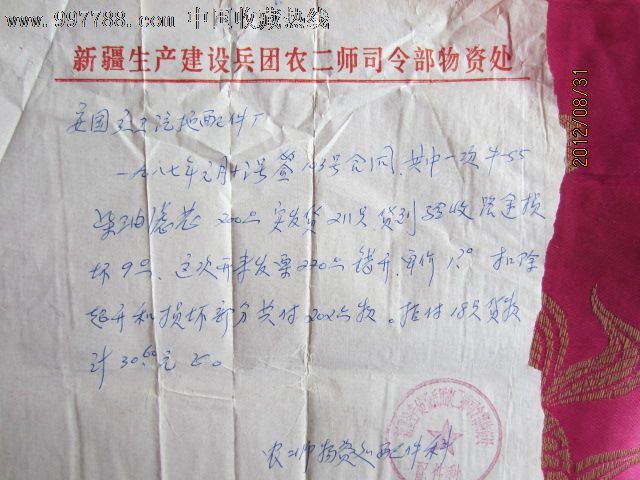 www.997788.com 中国收藏热线
新疆生产建设兵团农二师司令部物资处
2012/08/31
配件厂
一九八七年元月 号签 号合同,其中一次牛-55
柴油滤芯 200只 实发货211只,货到验收路途损
坏9只,这次开来发票220只错开,单价1.70 扣除
超开和损坏部分共付202只款。拒付18只货款
计30.60元正。
农二师物资处配件科